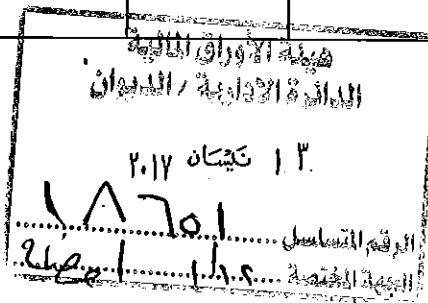 هيئة الأوراق المالية
الدائرة الإدارية / الديوان
١٣ نيسان ٢٠١٧
الرقم المتسلسل ١٨٦٥١
الجهة المختصة